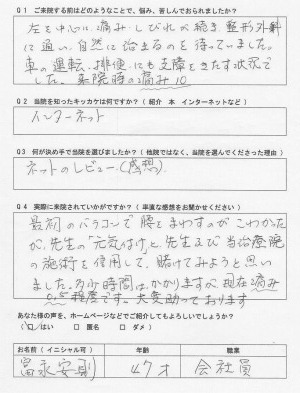 Q1 ご来院する前はどのようなことで、悩み、苦しんでおられましたか?
左を中心に痛み・しびれが続き、整形外科
に通い、自然に治まるのを待っていました。
車の運転、排便にも支障をきたす状況で
した。来院時の痛み10
Q2 当院を知ったキッカケは何ですか?(紹介 本 インターネットなど)
インターネット
Q3 何が決め手で当院を選びましたか?(他院ではなく、当院を選んでくださった理由)
ネットのレビュー(感想)
Q4 実際に来院されていかがですか?(率直な感想をお聞かせください)
最初のバラコンで腰をまわすのがこわかった
が、先生の「元気付け」と、先生及び当治療院
の施術を信用して、賭けてみようと思い
ました。多少時間はかかりますが、現在痛み
0.5程度です。大変助っております
あなた様の声を、ホームページなどでご紹介してもよろしいでしょうか?
(□ はい □ 匿名 □ ダメ)
お名前(イニシャル可) 年齢 職業
富永安則 47才 会社員